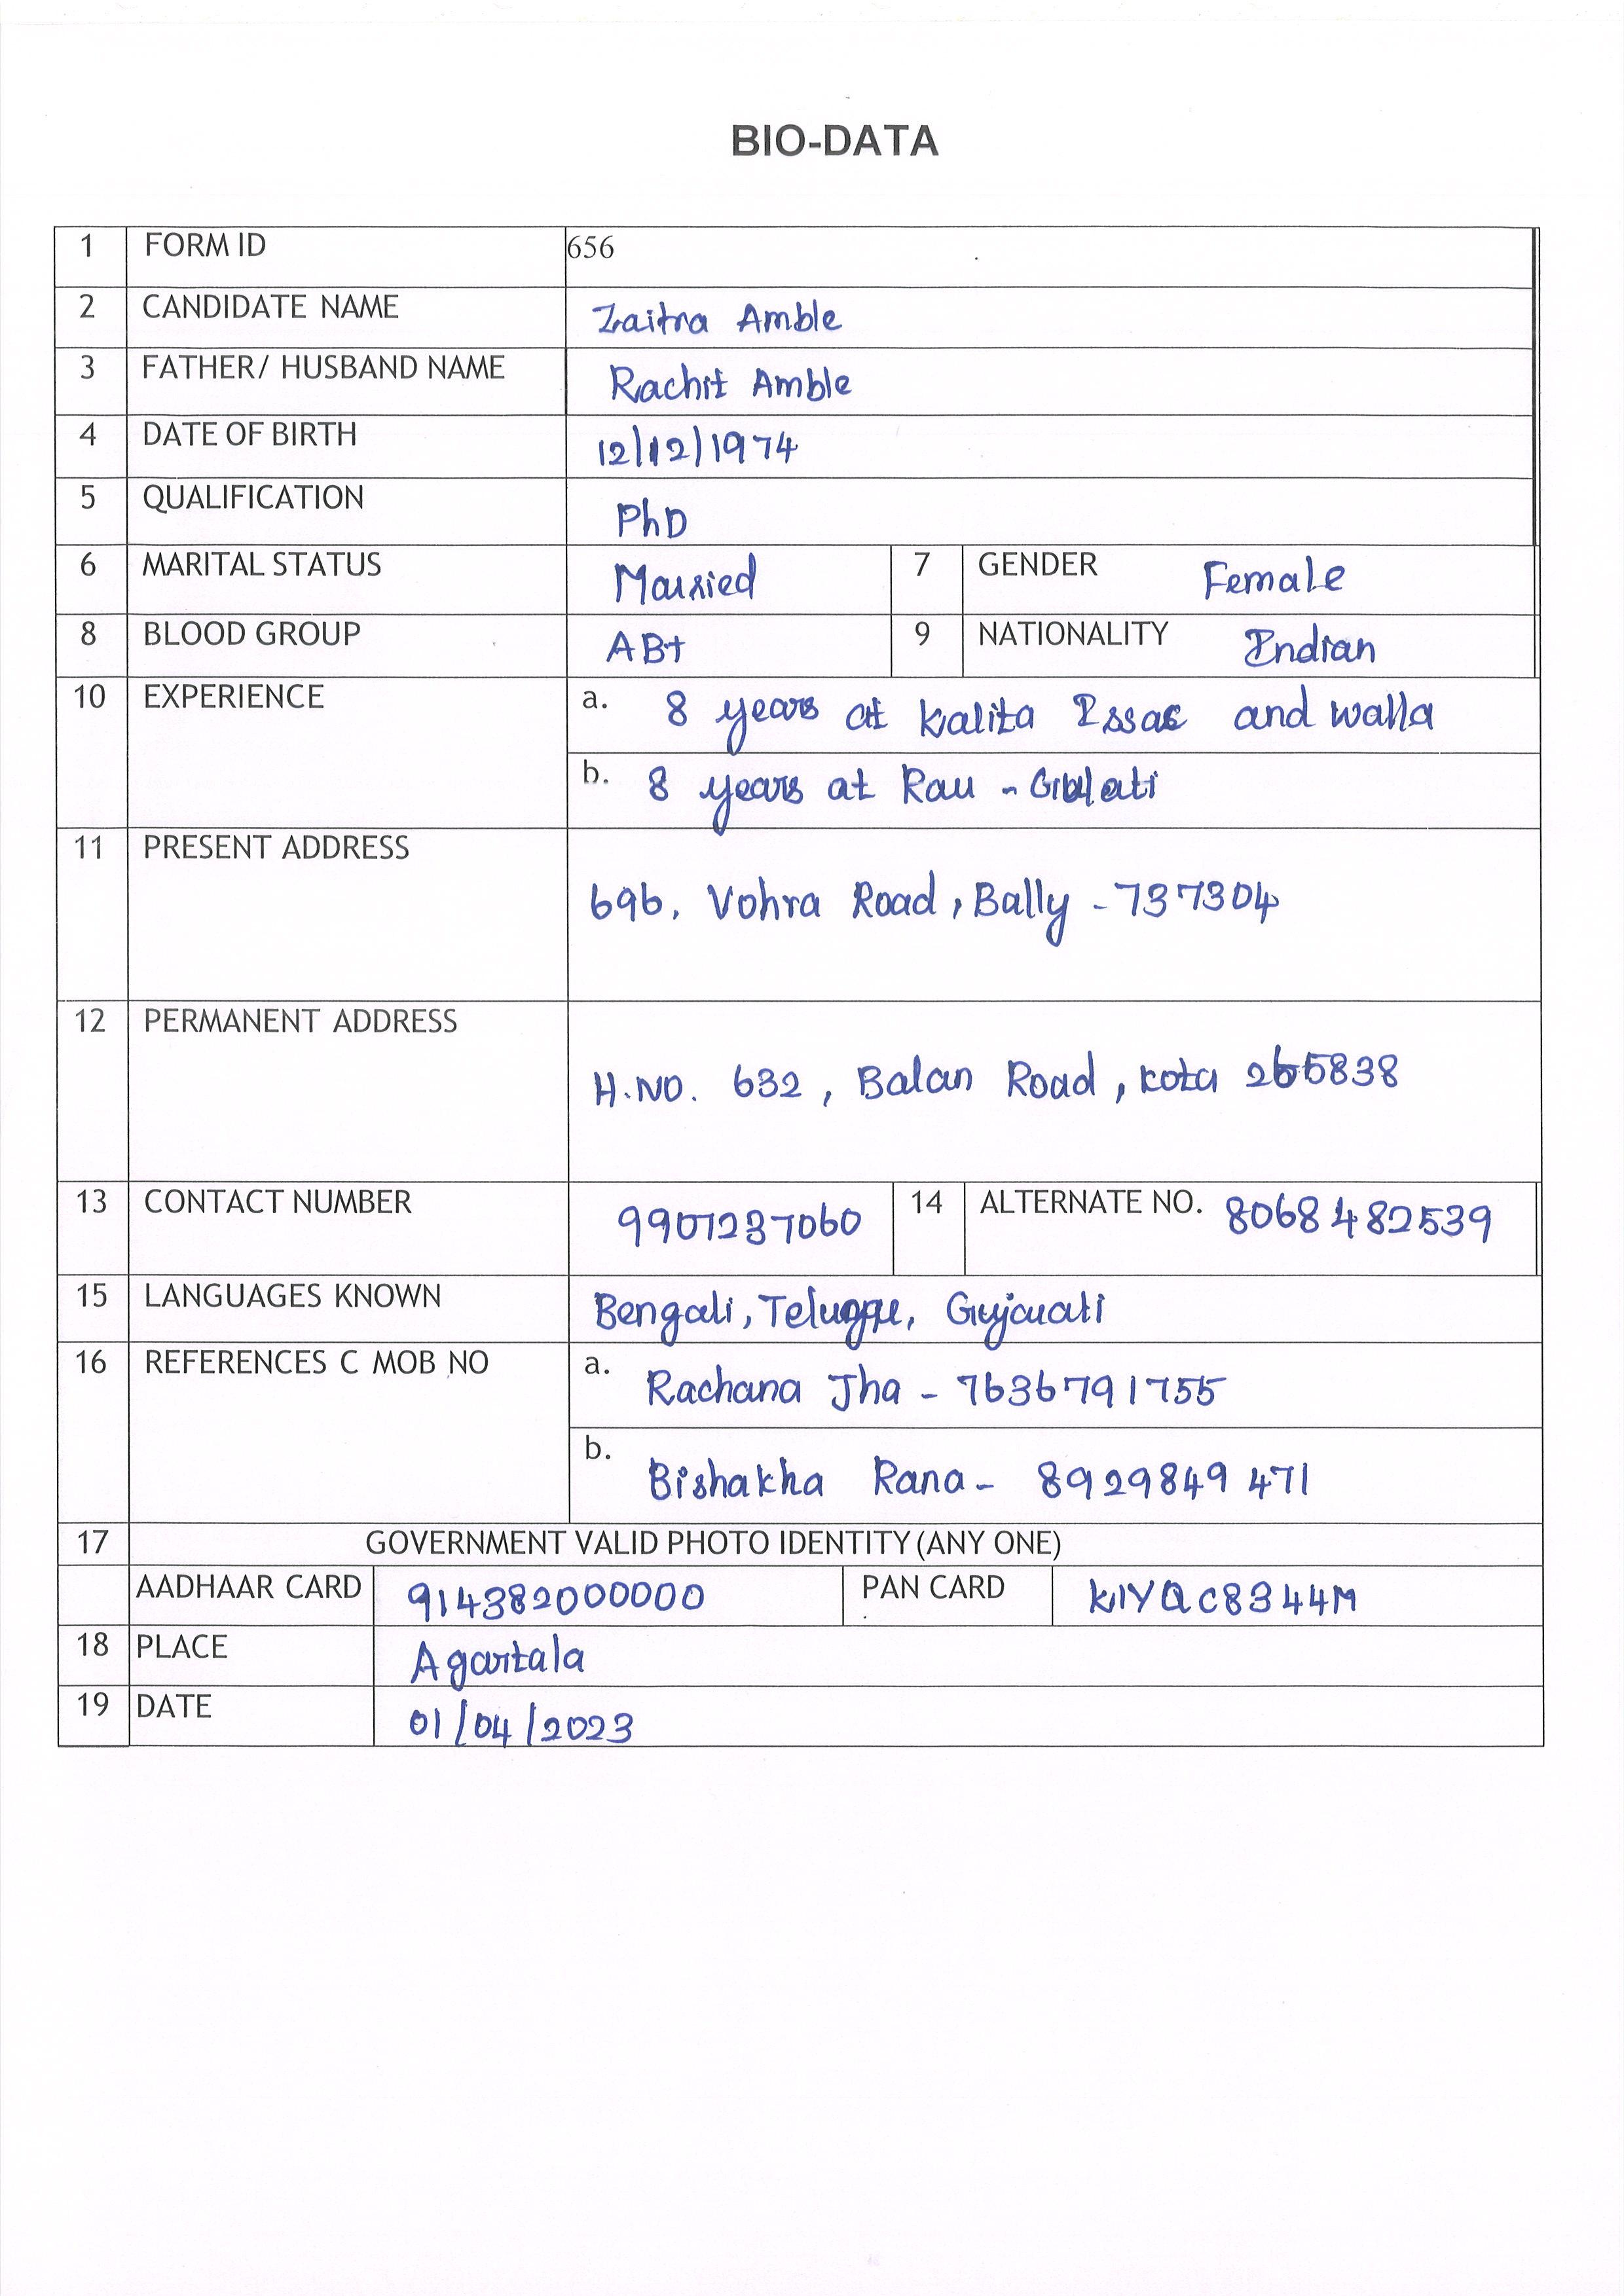 BIO-DATA
1 FORM ID 656
2 CANDIDATE NAME Zaitra Amble
3 FATHER/ HUSBAND NAME Rachit Amble
4 DATE OF BIRTH 12/12/1974
5 QUALIFICATION PhD
6 MARITAL STATUS Married 7 GENDER Female
8 BLOOD GROUP AB+ 9 NATIONALITY Indian
10 EXPERIENCE a. 8 years at Kalita Issac and Walla
b. 8 years at Rau -
11 PRESENT ADDRESS
696, Vohra Road, Bally - 737304
12 PERMANENT ADDRESS
H.NO. 632, Balan Road, Kota
13 CONTACT NUMBER 9901237060 14 ALTERNATE NO. 8068482539
15 LANGUAGES KNOWN Bengali, Telugu, Gujarati
16 REFERENCES C MOB NO a. Rachana Jha - 7636791755
b. Bishakha Rana - 8929849471
17 GOVERNMENT VALID PHOTO IDENTITY (ANY ONE)
AADHAAR CARD 914382000000 PAN CARD KIYQC8344M
18 PLACE Agartala
19 DATE 01/04/2023